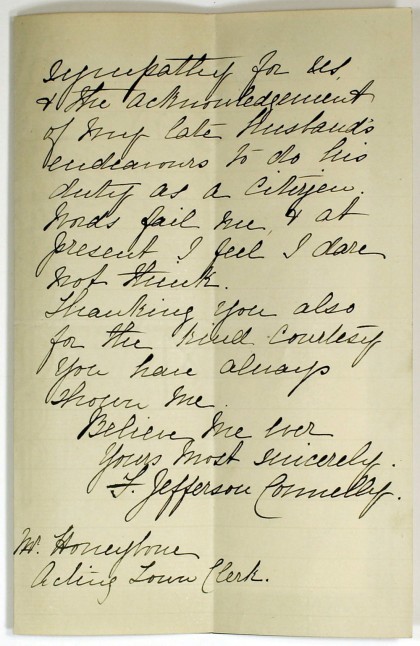 sympathy for us,
& the acknowledgement
of my late husband's
endeavours to do his
duty as a Citizen.
Words fail me, & at
present I feel I dare
not think.
Thanking you also
for the kind courtesy
you have always
shown me.
Believe me ever
Yours most sincerely.
F. Jefferson Connelly.
Mr. Honeybone
Acting Town Clerk.